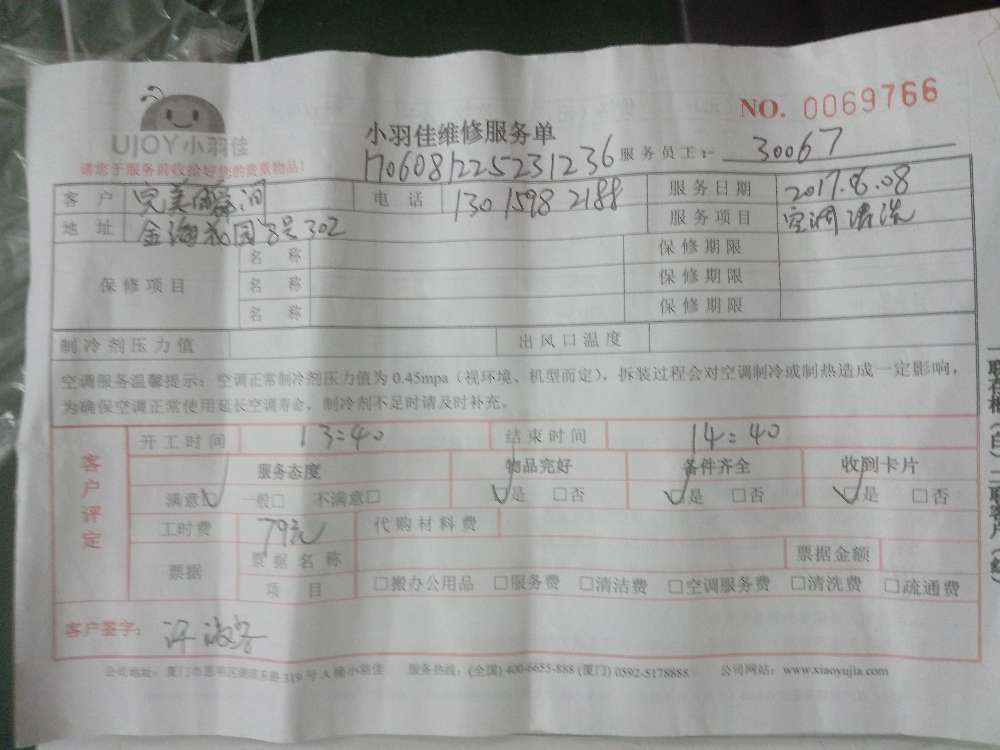 NO. 0069766
UJOY小羽佳
小羽佳维修服务单
请您于服务前收给好您的贵重物品!
170608122523 1236 服务员工: 30067
客户 完美瞬间 电话 13015982188 服务日期 2017.6.08
地址 金海花园3号302 服务项目 空调清洗
保修项目 名称 保修期限
名称 保修期限
名称 保修期限
制冷剂压力值 出风口温度
空调服务温馨提示:空调正常制冷剂压力值为 0.45mpa(视环境、机型而定),拆装过程会对空调制冷或制热造成一定影响,
为确保空调正常使用延长空调寿命,制冷剂不足时请及时补充。
客户评定
开工时间 13:40 结束时间 14:40
服务态度 物品完好 备件齐全 收到卡片
满意☑ 一般□ 不满意□ ☑是 □否 ☑是 □否 ☑是 □否
工时费 79元 代购材料费
票据 票据名称 票据金额
项目 □搬办公用品 □服务费 □清洁费 □空调服务费 □清洗费 □疏通费
客户签字: 许
公司地址:厦门市思明区湖滨东路 319 号 A 梯小羽佳 服务热线:(全国) 400-6655-888 (厦门) 0592-5178888 公司网站:www.xiaoyujia.com
一联存根(白)二联客户(红)